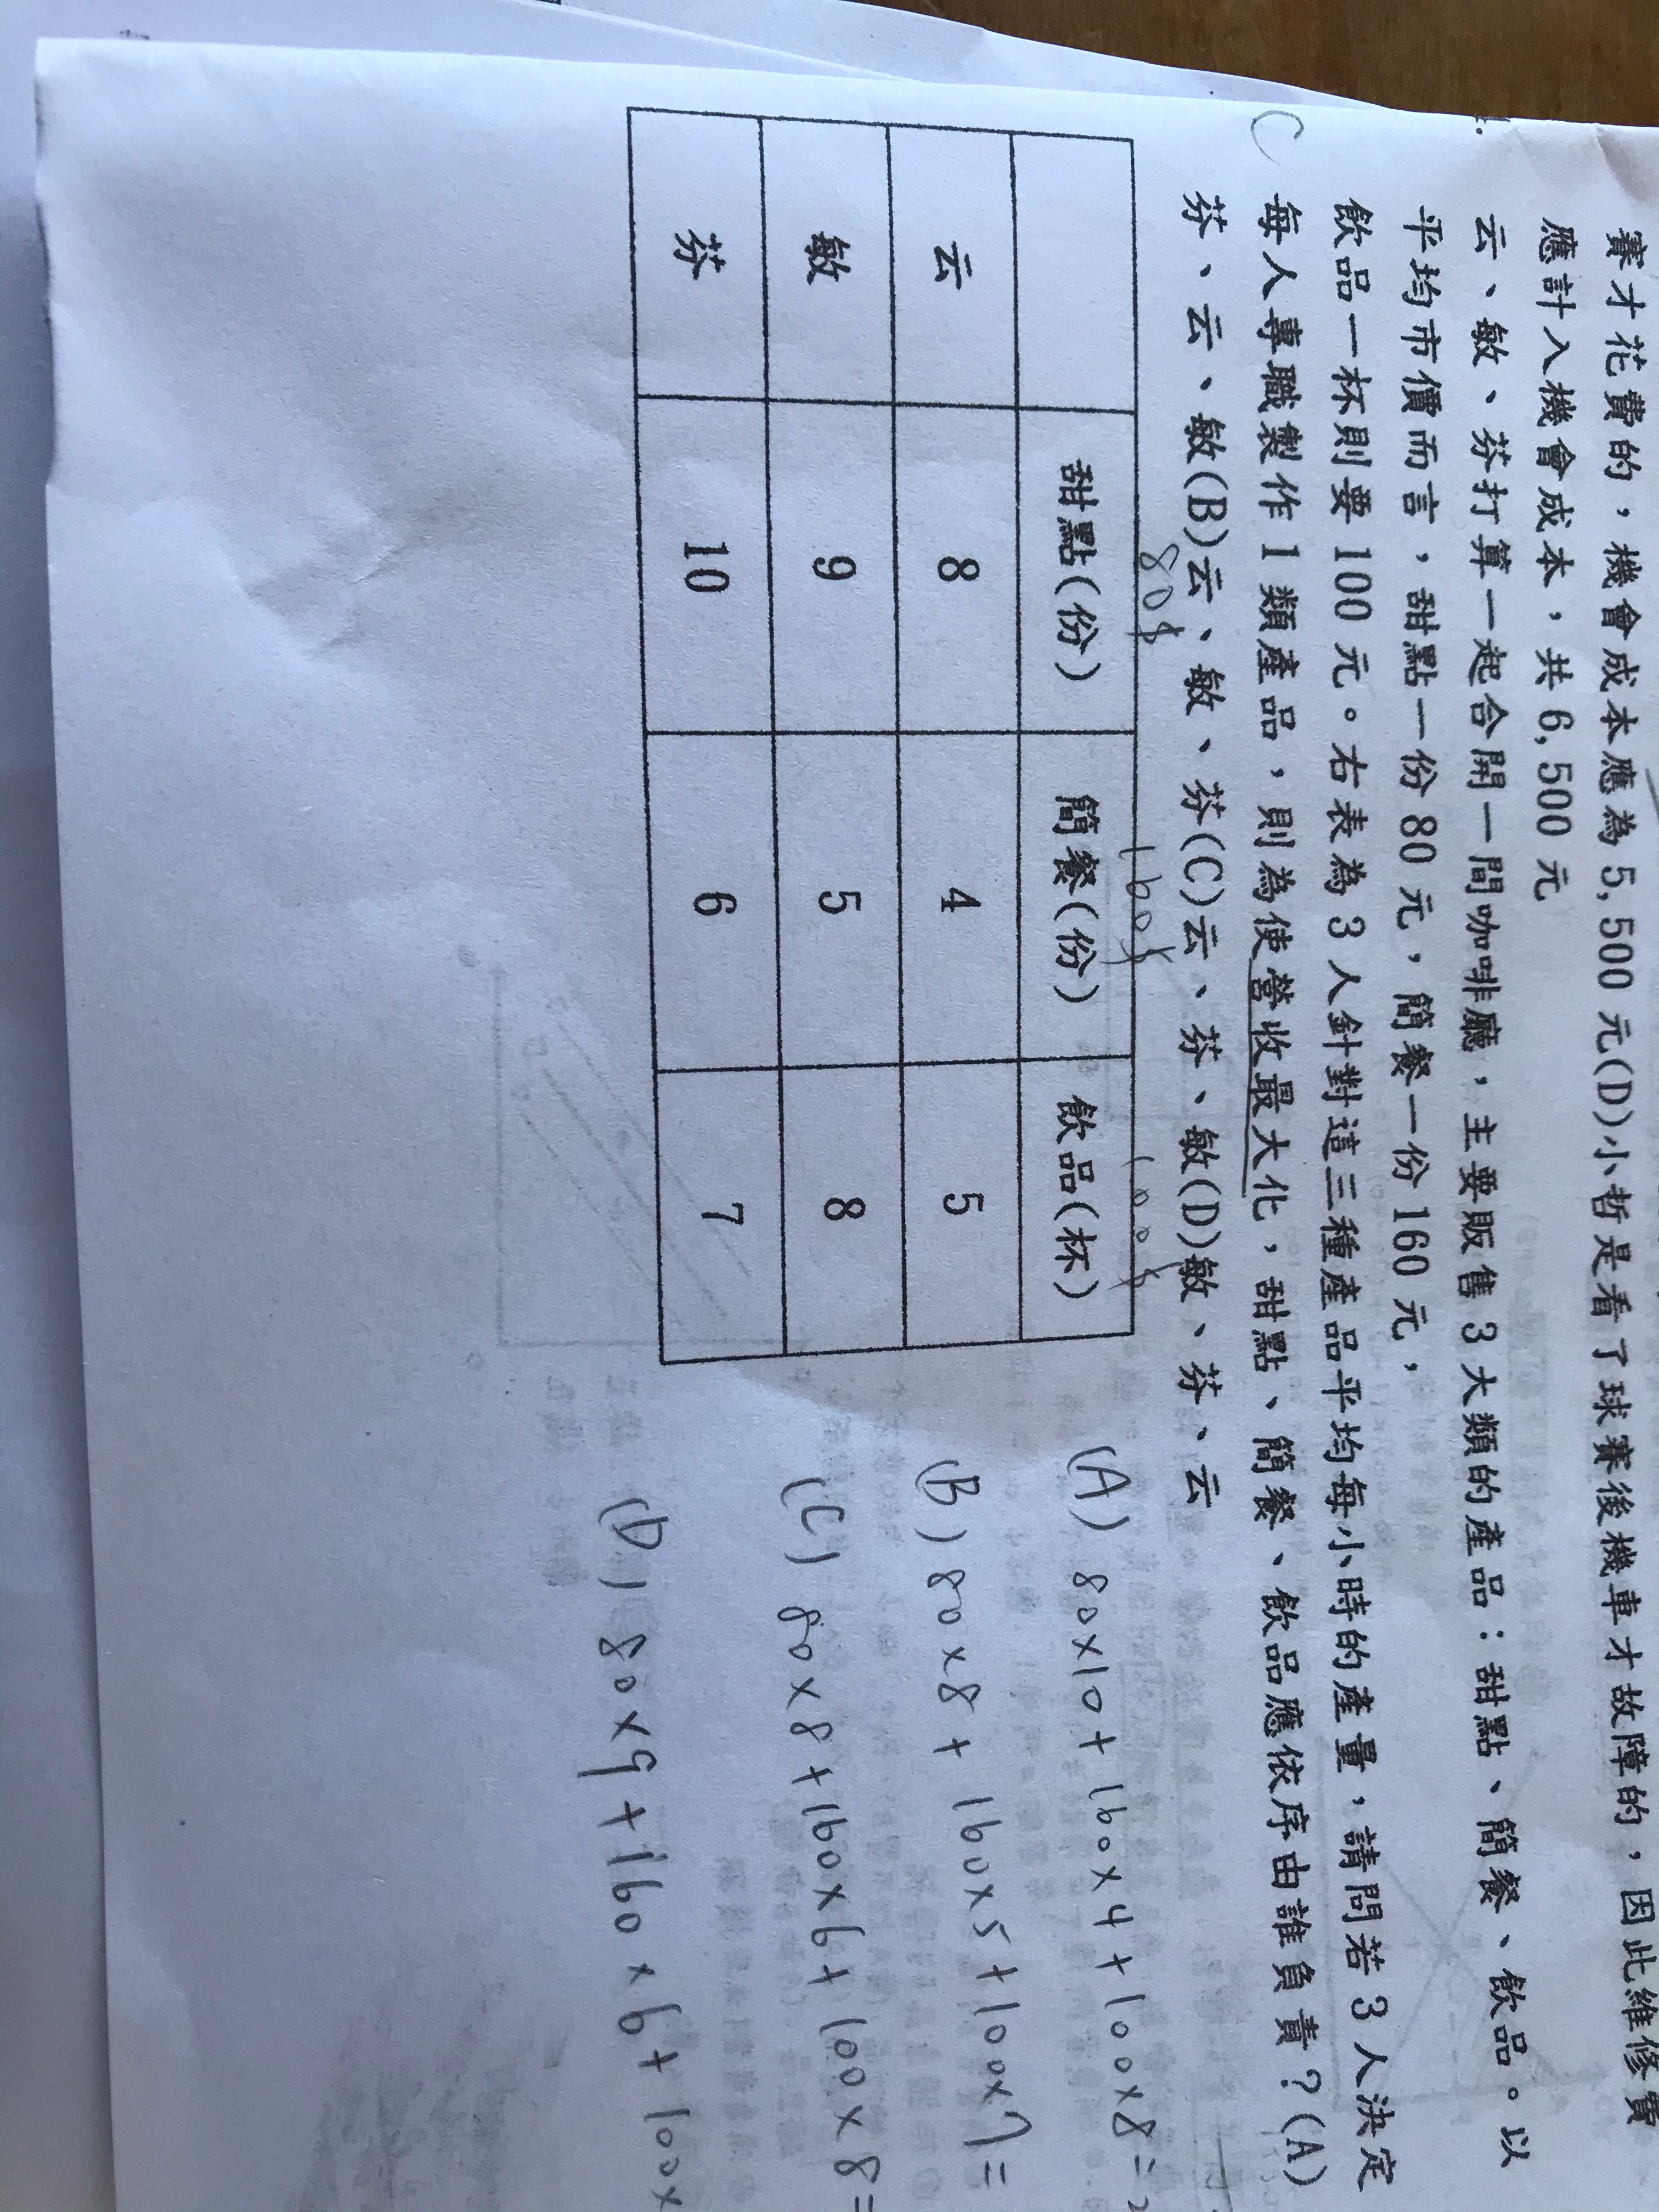 賽才花費的，機會成本應為 5,500 元(D)小哲是看了球賽後機車才故障的，因此維修費
應計入機會成本，共 6,500 元
云、敏、芬打算一起合開一間咖啡廳，主要販售 3 大類的產品：甜點、簡餐、飲品。以
平均市價而言，甜點一份 80 元，簡餐一份 160 元，
飲品一杯則要 100 元。右表為 3 人針對這三種產品平均每小時的產量，請問若 3 人決定
C 每人專職製作 1 類產品，則為使營收最大化，甜點、簡餐、飲品應依序由誰負責？(A)
芬、云、敏(B)云、敏、芬(C)云、芬、敏(D)敏、芬、云
80$ 160$ 100$
甜點(份) 簡餐(份) 飲品(杯)
云 8 4 5
敏 9 5 8
芬 10 6 7
(A) 80×10+160×4+100×8=
(B) 80×8+160×5+100×7=
(C) 80×8+160×6+100×8=
(D) 80×9+160×6+100×